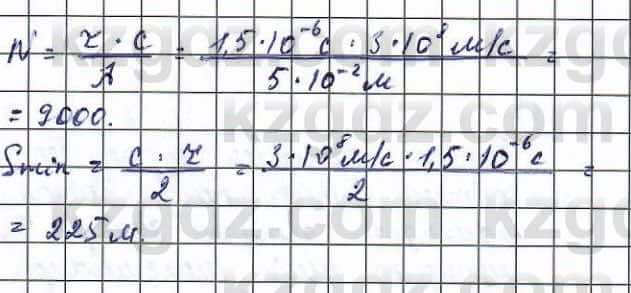 N = τ · c / λ = 1,5 · 10⁻⁶ с · 3 · 10⁸ м/с / 5 · 10⁻² м =
= 9000.
Smin = c · τ / 2 = 3 · 10⁸ м/с · 1,5 · 10⁻⁶ с / 2 =
= 225 м.